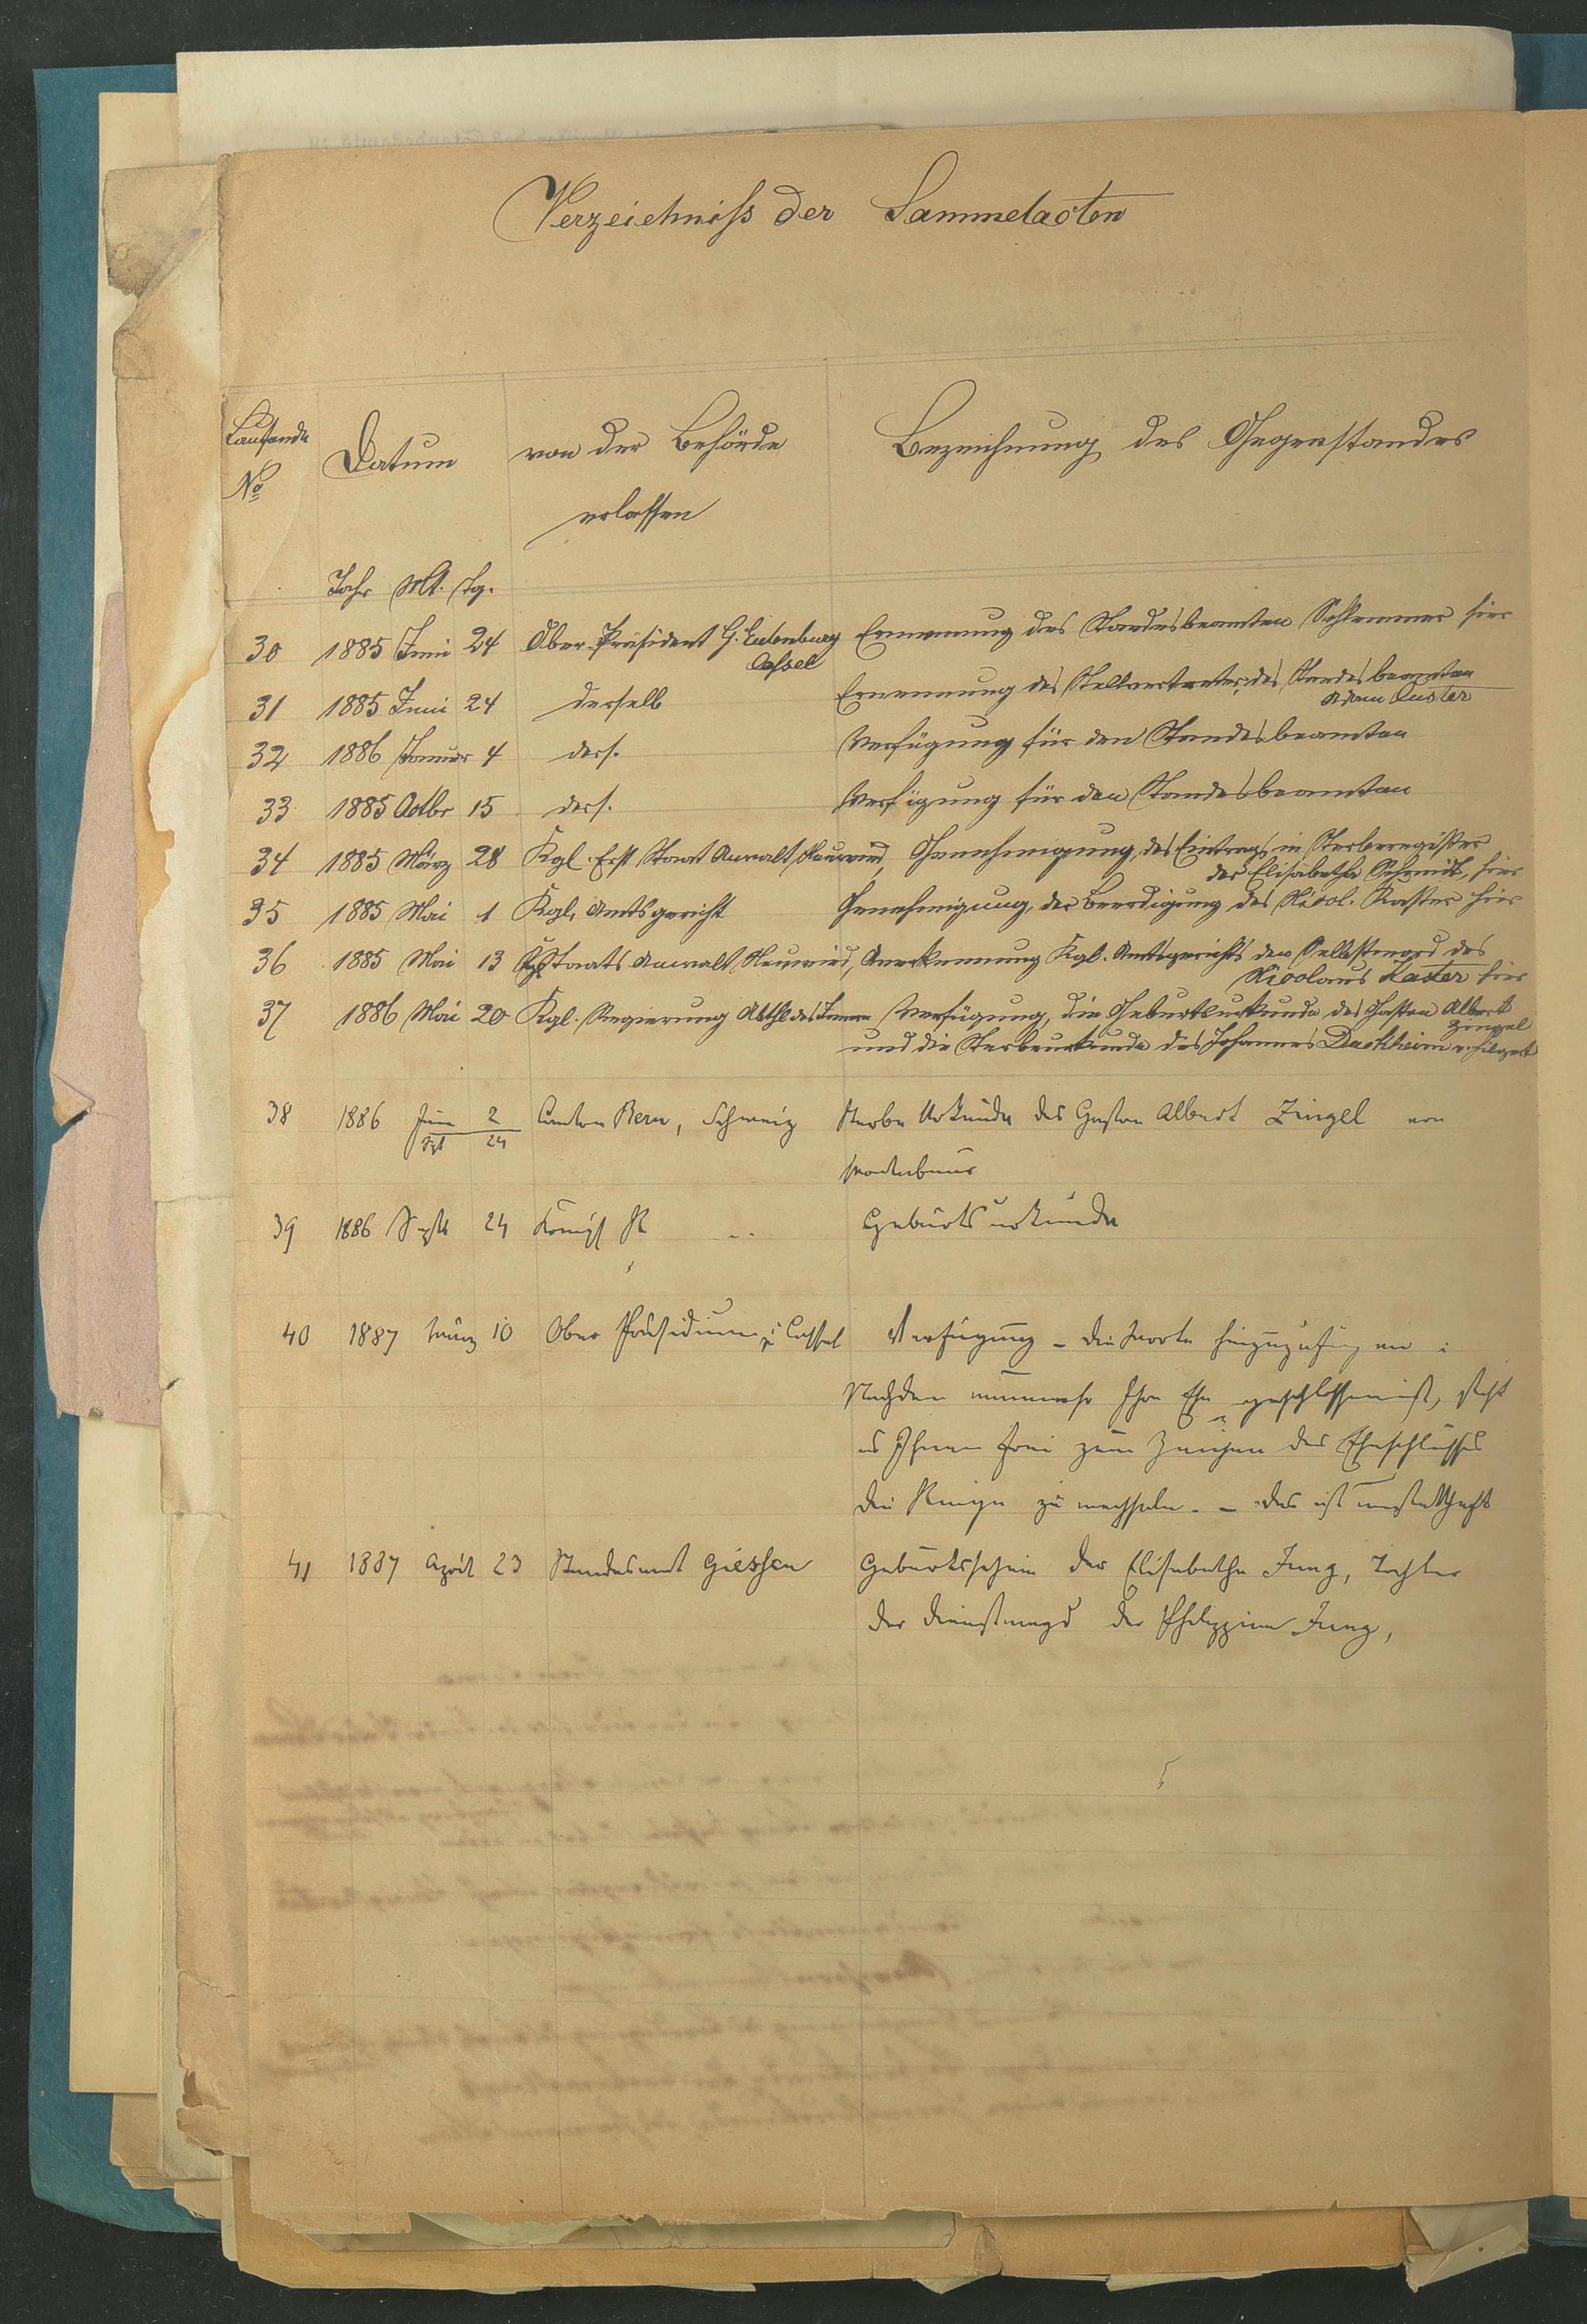 Verzeichniß der Sammelacten
Laufende
No
Datum
von der Behörde
erlassen
Bezeichnung des Gegenstandes
Jahr Mt. Tg.
30 1885 Juni 24 Ober-Präsident G. Eulenburg Ernennung des Standesbeamten Schlemmer hier
Cassel
31 1885 Juni 24 derselb Ernennung des Stellvertreters, des Standesbeamten
Adam Custer
32 1886 Januar 4 ders. Verfügung für den Standesbeamten
33 1885 Octbr 15 ders. Verfügung für den Standesbeamten
34 1885 März 28 Kgl. Erst Staat Anwalt Neuwied, Genehmigung, des Eintrags in Sterberegister
der Elisabetha Schmidt, hier
35 1885 Mai 1 Kgl. Amtsgericht Genehmigung, der Beerdigung des Nicol. Kaster hier
36 1885 Mai 13 Kgl Staats Anwalt Neuwied, Anerkennung Kgl. Amtsgerichts den Selbstmord des
Nicolaus Kaster hier
37 1886 Mai 20 Kgl. Regierung Abthl des Innern Verfügung, die Geburtsurkunde des Gaston Albert
Zingel
und die Sterbeurkunde des Johannes Dackheim
38 1886 Juni 2 Canton Bern, Schweiz Sterbe Urkunde des Gaston Albert Zingel von
Spt 24
39 1886 Septb 24 Königl Geburtsurkunde
40 1887 März 10 Ober Präsidium Cassel Verfügung - die Worte hinzuzufügen :
Nachdem nunmehr Ihre Ehe geschlossen ist, steht
es Ihnen frei zum Zeichen des Eheschlusses
die Ringe zu wechseln. - das ist unstatthaft
41 1887 April 23 Standesamt Giessen Geburtsschein der Elisabetha Jung, Tochter
der Dienstmagd der Philippine Jung,